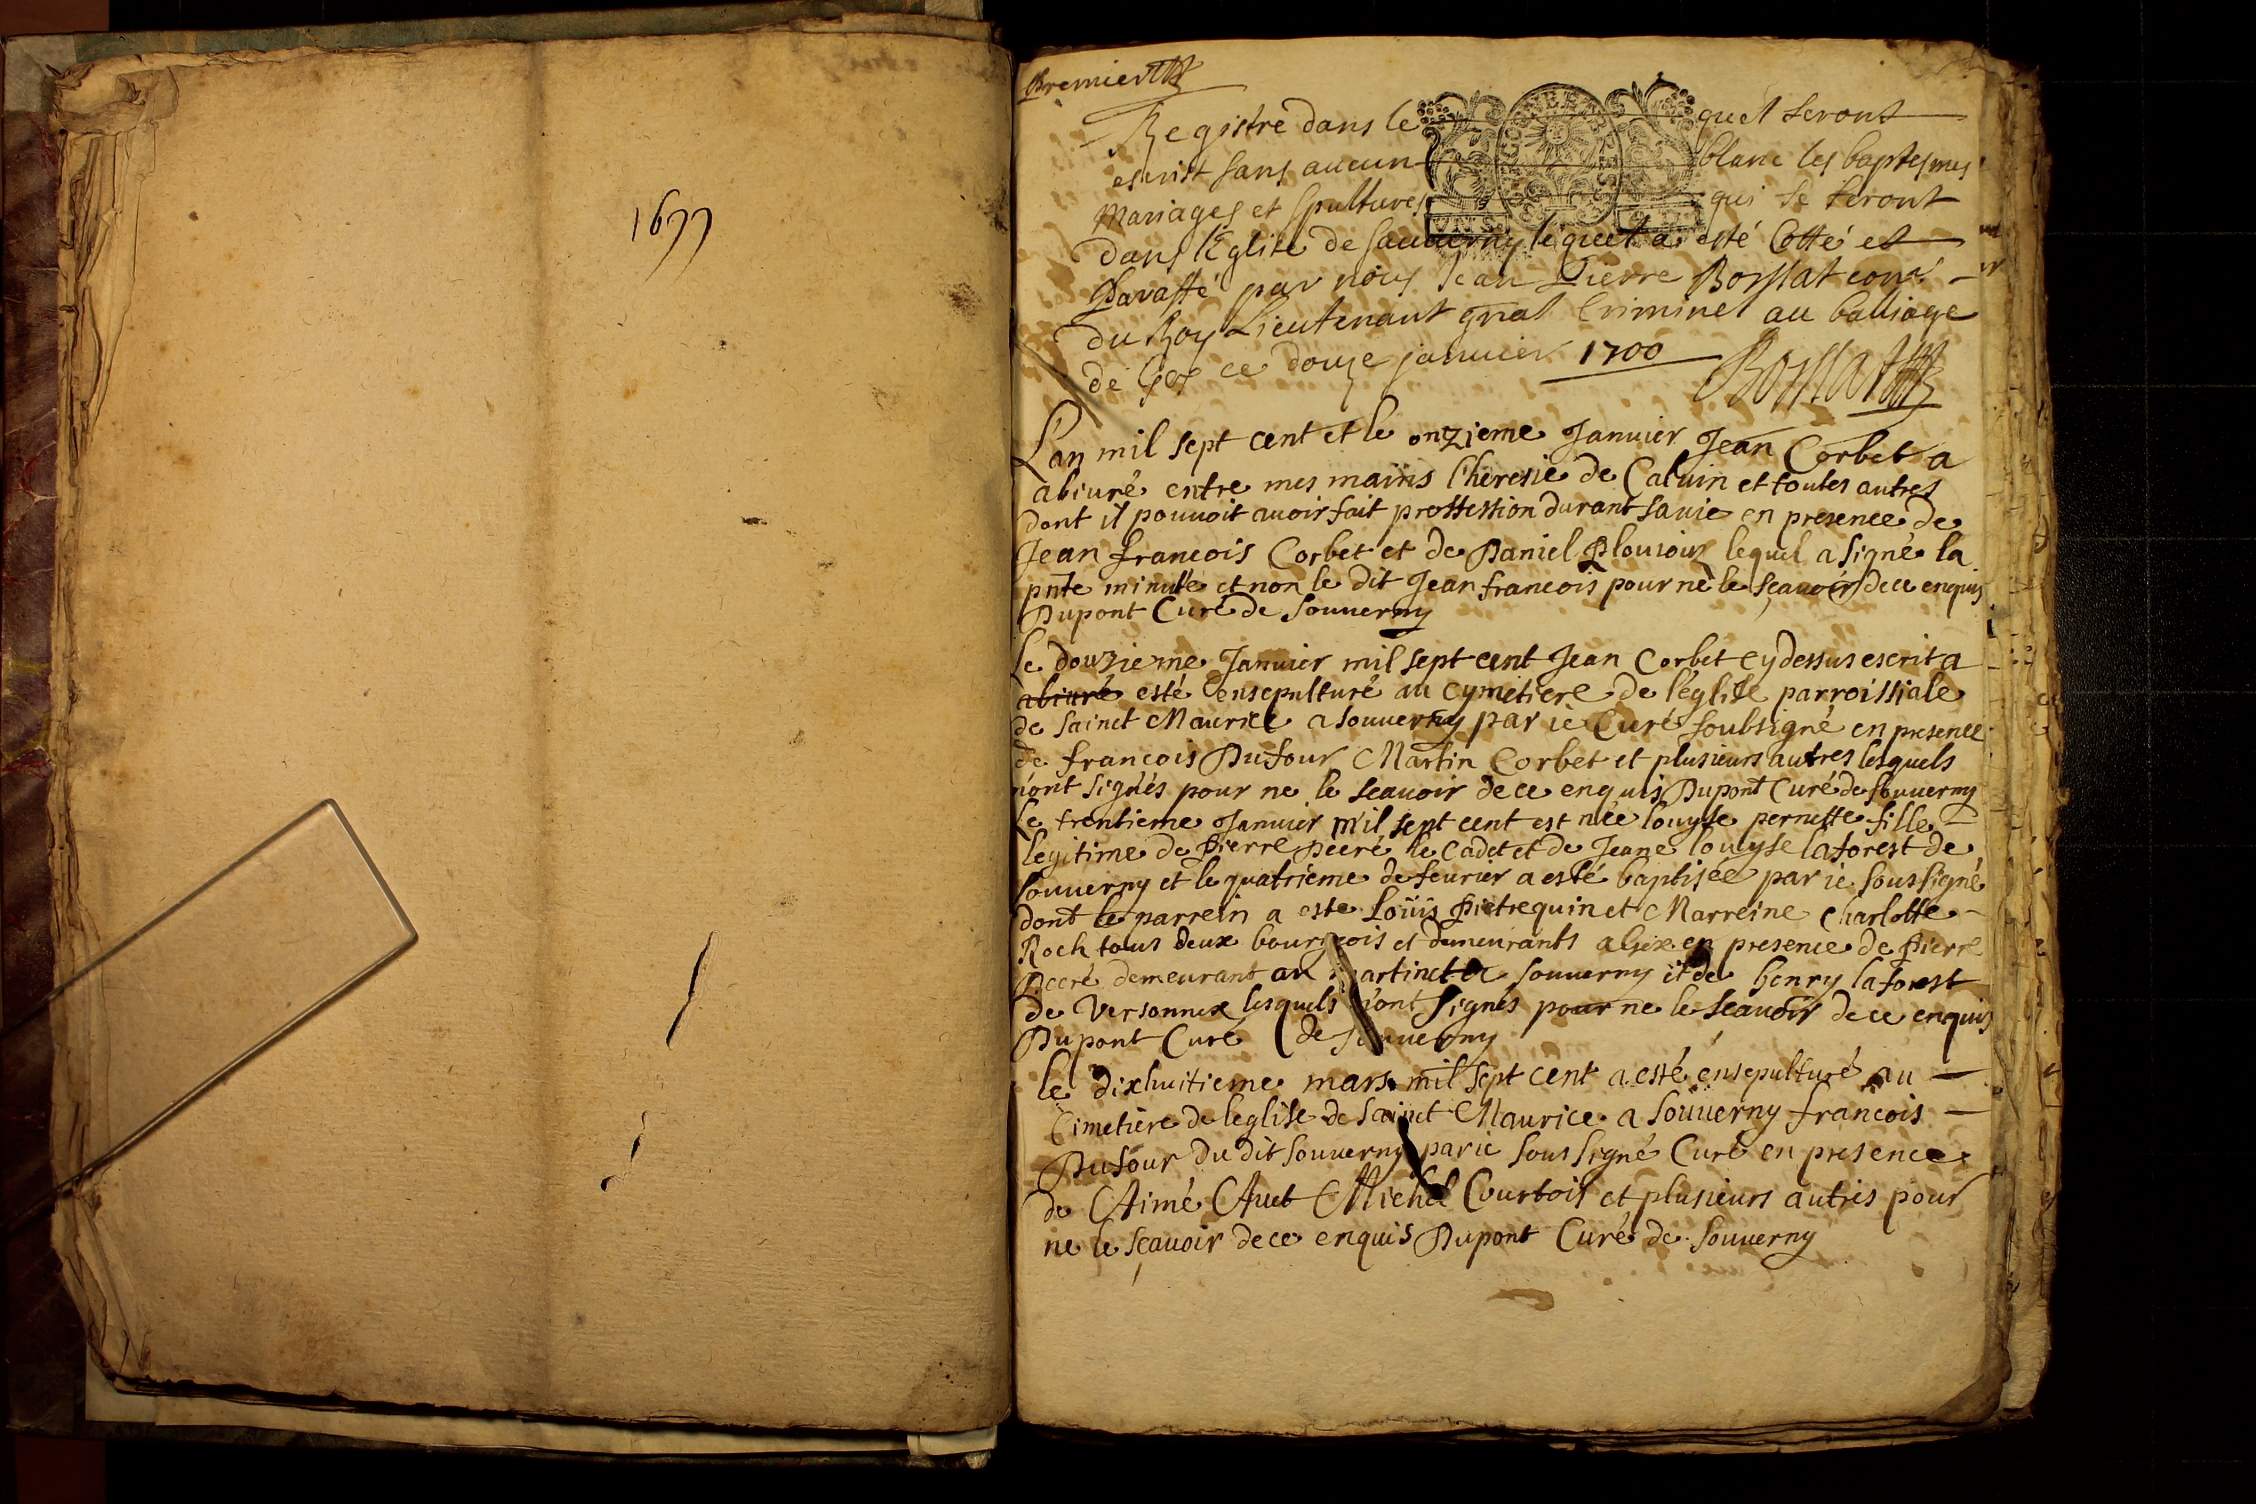 1677
Premier
Registre dans lequel seront
escrist sans aucun blanc les baptesmes
Mariages et spultures qui se feront
dans l'Eglise de Sauverny lequel a esté Cotté et
Paraffé par nous Jean Pierre Borssat con.er
du Roy Lieutenant gnal Criminel au balliage
de Gex ce douze januier 1700 Borssat
L'an mil sept cent et le onzieme Januier Jean Corbet a
abiuré entre mes mains l'heresie de Caluin et toutes autres
dont il pouuoit auoir fait proffession durant sa uie en presence de
Jean francois Corbet et de Daniel lequel a signé la
pnte minute et non le dit Jean francois pour ne le sçauoir de ce enquis
Dupont Curé de Souuerny
le douzieme Januier mil sept cent Jean Corbet cy dessus escrit a
abiuré esté ensepulturé au cymetiere de l'eglise parroissiale
de Sainct Maurice a Souuerny par ie Curé soubsigné en presence
de francois Dufour Martin Corbet et plusieurs autres lesquels
n'ont signés pour ne le sçauoir de ce enquis Dupont Curé de Souuerny
Le trentieme Januier mil sept cent est née louyse pernette fille
legitime de Pierre Decré le Cadet et de Jeane louyse laforest de
Souuerny et le quatrieme de feurier a esté baptisée par ie soussigné
dont le parrein a esté Loüis Pietrequin et Marreine Charlotte
Roch tous deux bourgeois et demeurants a Gex en presence de Pierre
Decré demeurant au martinet de Souuerny et de henry laforest
de Versonnex lesquels n'ont signés pour ne le sçauoir de ce enquis
Dupont Curé de Souuerny
le dixhuitieme mars mil sept cent a esté ensepulturé au
Cimetiere de leglise de Sainct Maurice a Souuerny francois
Dufour du dit Souuerny par ie sous signé Curé en presence
de Aimé Auet Michel Courtois et plusieurs autres pour
ne le sçauoir de ce enquis Dupont Curé de Souuerny